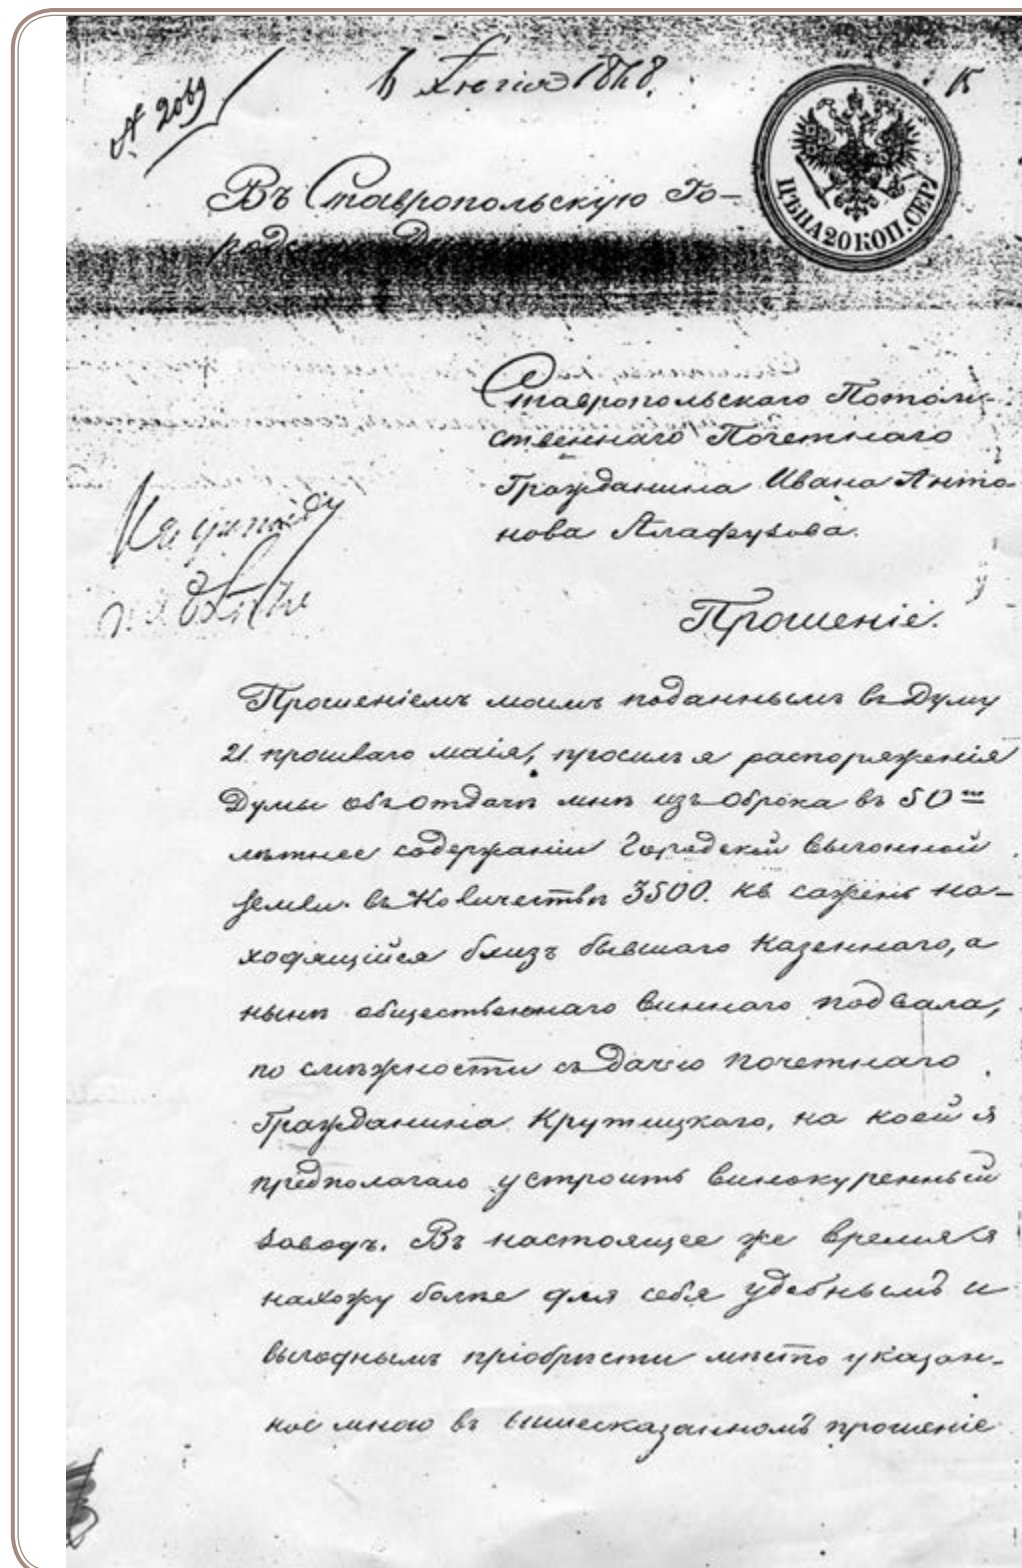 № 2069
Іюня 1868.
15
ЦѢНА 20 КОП. СЕР.
Въ Ставропольскую Го-
родскую Думу
Ставропольскаго Потом-
ственнаго Почетнаго
Гражданина Ивана Анто-
нова Алафузова.
Прошеніе.
Прошеніемъ моимъ поданнымъ въ Думу
21 прошлаго маія, просилъ я распоряженія
Думы объ отдачѣ мнѣ изъ оброка въ 50ти
лѣтнее содержаніе Городской выгонной
земли въ количествѣ 3500 кв. сажень на-
ходящійся близъ бывшаго казеннаго, а
нынѣ общественнаго виннаго подвала,
по смѣжности съ дачею почетнаго
Гражданина Крутицкаго, на коей я
предполагаю устроить винокуренный
заводъ. Въ настоящее же время я
нахожу болѣе для себя удобнымъ и
выгоднымъ пріобрѣсти мѣсто указан-
ное мною въ вышесказанномъ прошеніе